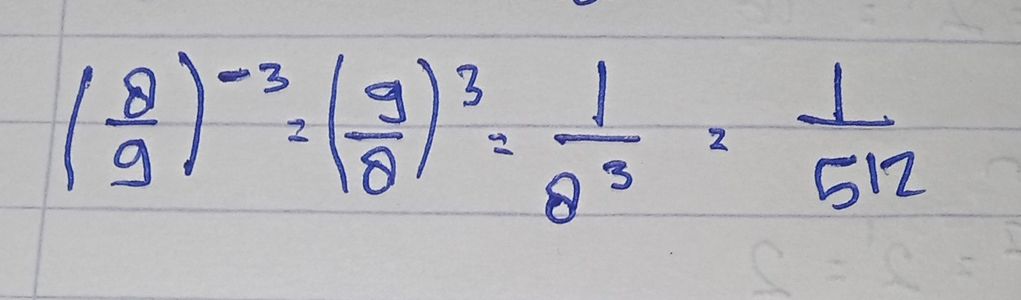 (8/9)^-3 = (9/8)^3 = 1/8^3 = 1/512